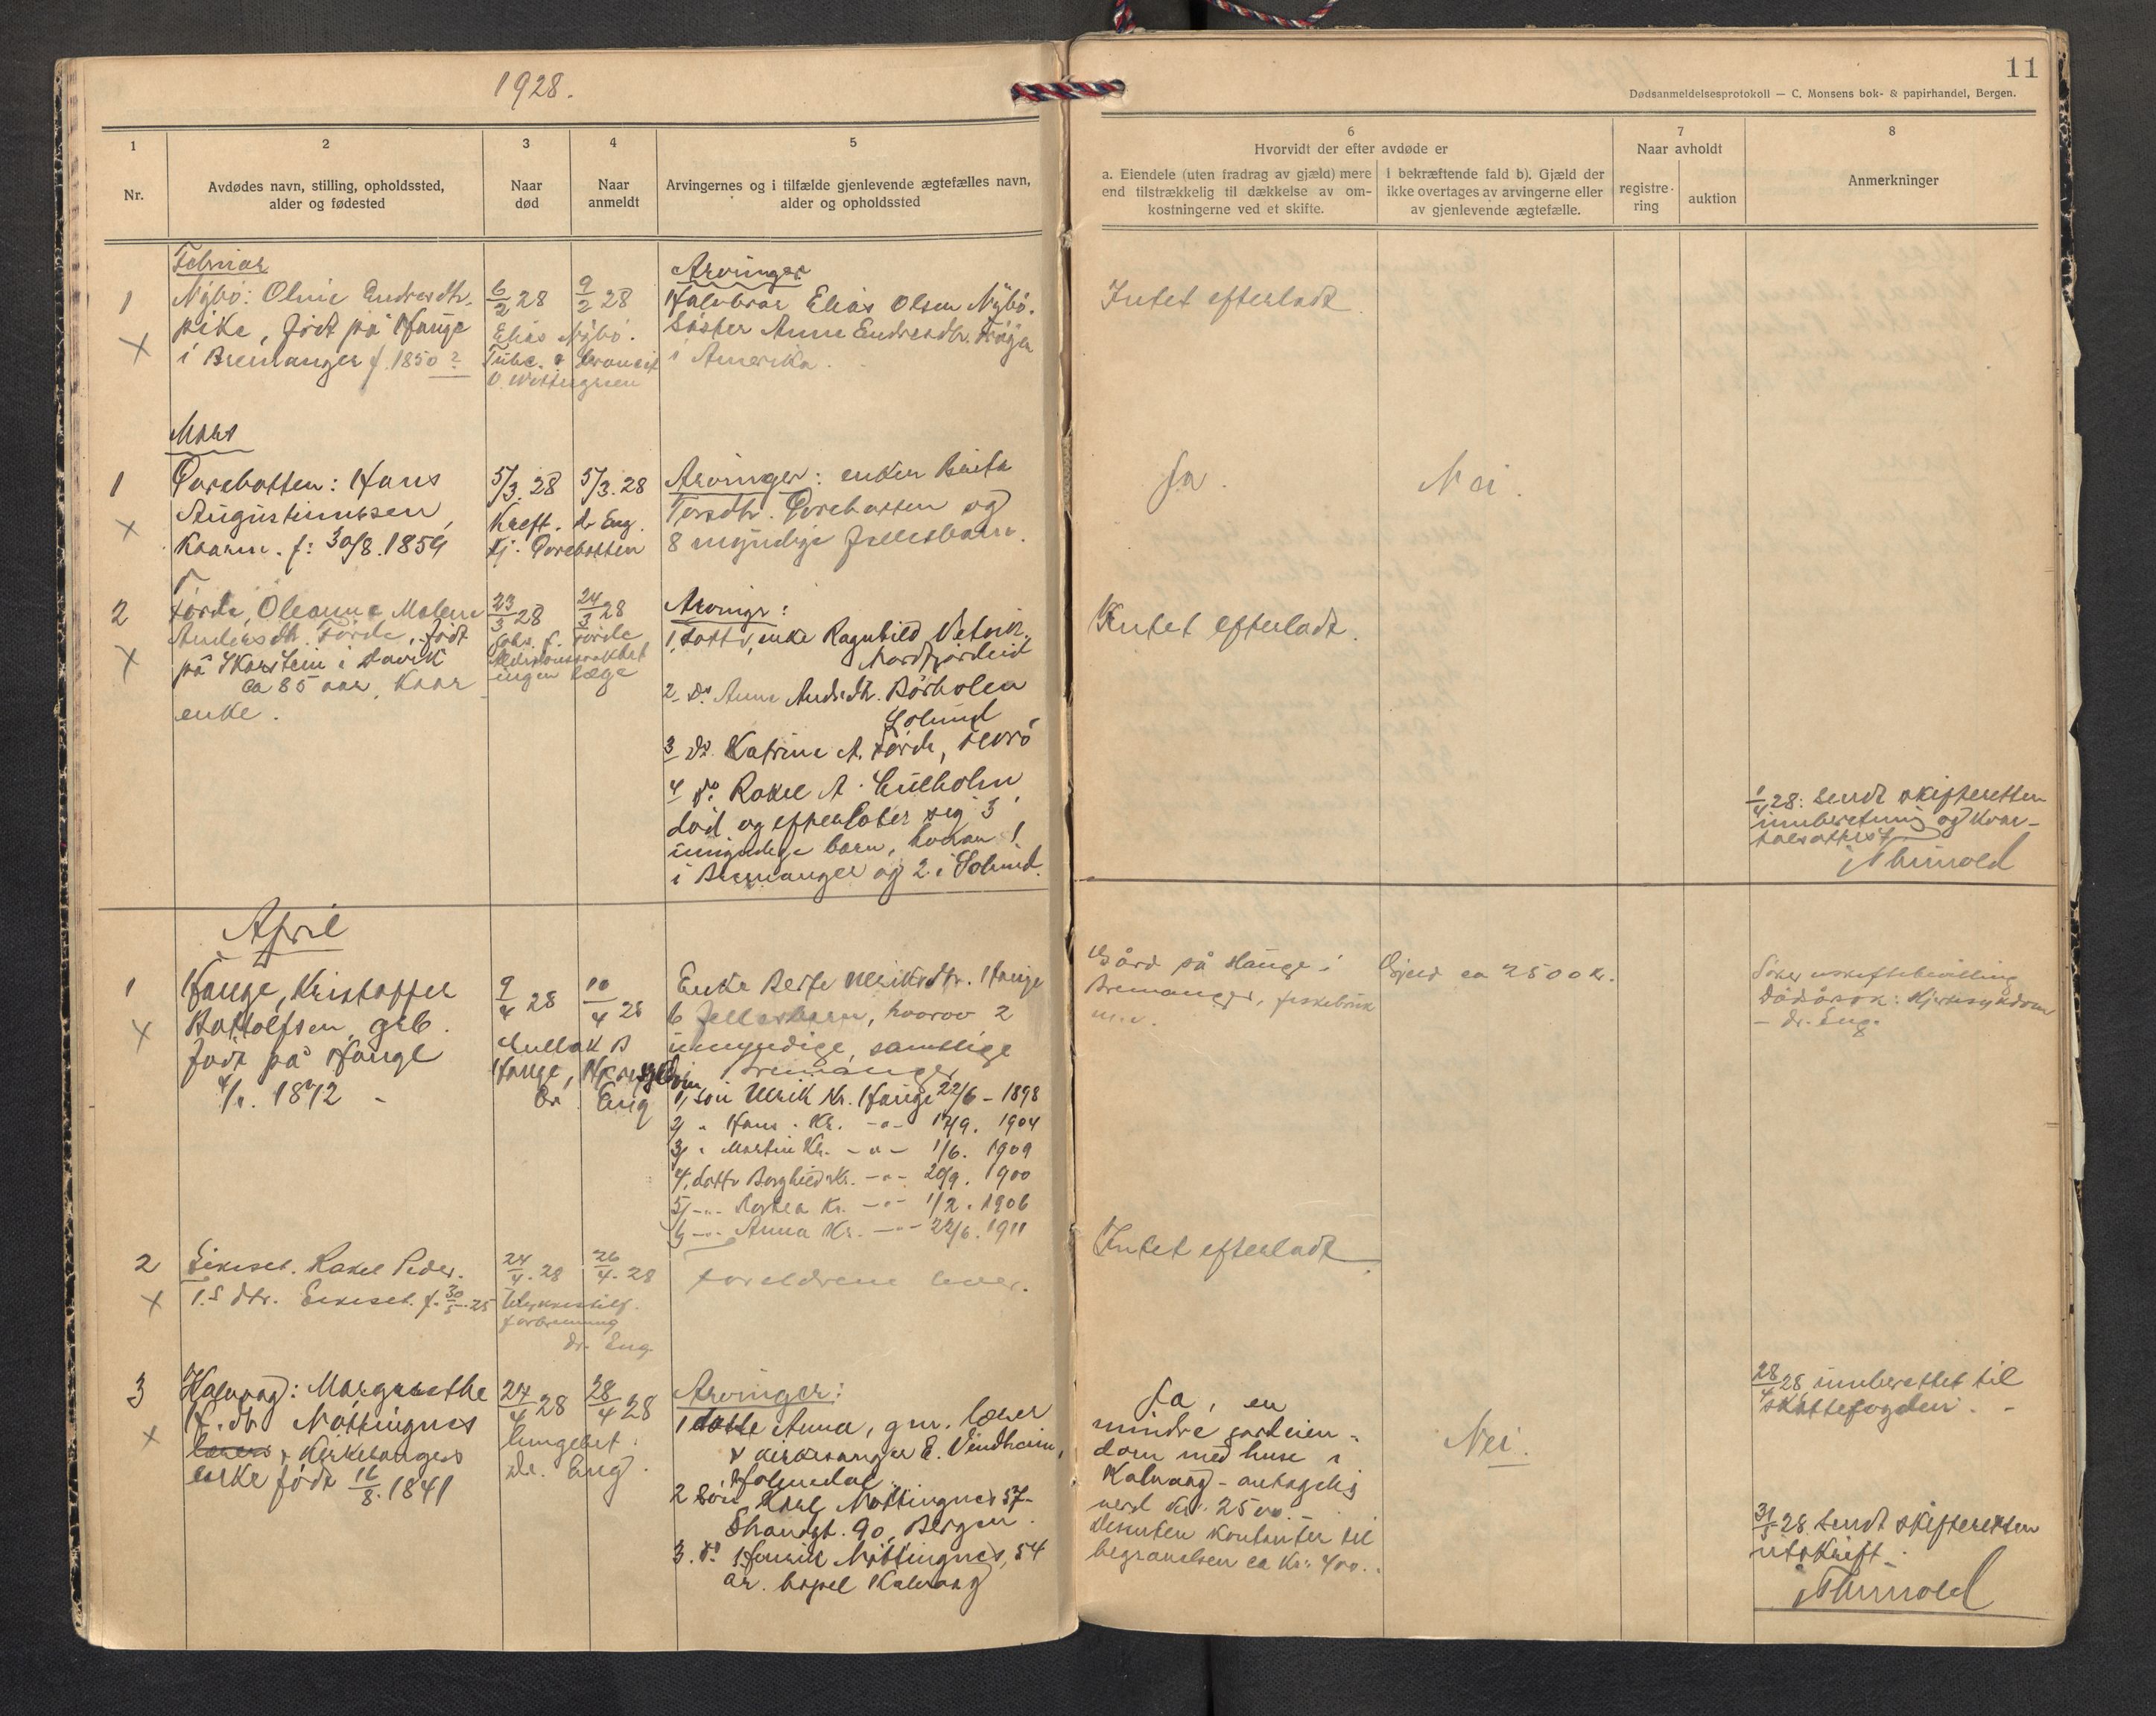 1928.
11
Dødsanmeldelsesprotokoll — C. Monsens bok- & papirhandel, Bergen.
1
Nr.
2
Avdødes navn, stilling, opholdssted,
alder og fødested
3
Naar
død
4
Naar
anmeldt
5
Arvingernes og i tilfælde gjenlevende ægtefælles navn,
alder og opholdssted
6
Hvorvidt der efter avdøde er
a. Eiendele (uten fradrag av gjæld) mere
end tilstrækkelig til dækkelse av om-
kostningerne ved et skifte.
I bekræftende fald b). Gjæld der
ikke overtages av arvingerne eller
av gjenlevende ægtefælle.
7
Naar avholdt
registre-
ring
auktion
8
Anmerkninger
Februar
1
Nybö: Oline Endresdtr.
pike, født på Hauge
i Bremanger f. 1850?
6/2 28
9/2 28
Elias Nybö.
Arvinger
Halvbror Elias Olsen Nybö.
Söster Anne Endresdtr.
i Amerika.
Intet efterladt.
Mars
1
Hans
Augustinussen,
Kaarm. f: 30/8. 1859
5/3. 28
5/3. 28
Kreft. dr Eng.
Arvinger: enken Berta
og
8 myndige fellesbarn.
Ja.
Nei.
2
Förde, Oleanna Malene
Andersdtr. Förde, født
på Skarstein i Davik
ca 85 aar, Kaar
enke.
23/3 28
24/3 28
Förde
ingen læge
Arvingr:
1, datt., enke Ragnhild
Nordfjordeid
2 do. Anne Andrsdtr. Börholm
Solund
3 do. Katrine A. Förde,
4 do. Rakel A. Gulholm
död og efterlater sig 3
umyndige barn, hvorav 1
i Bremanger og 2 i Solund.
Intet efterladt.
1/4 28: Sendt skifteretten
innberetning og kvar-
talsattest
April
1
Hauge, Kristoffer
Botolfsen, grb.
født på Hauge
1872
9/4 28
10/4 28
Hauge,
Dr. Eng
Enke Berte Ulriksdtr. Hauge
6 fellesbarn, hvorav 2
umyndige, samtlige
Bremanger
1, sön Ulrik Kr. Hauge 22/6 - 1898
2, " Hans Kr. -"- 17/9. 1904
3, " Martin Kr. -"- 1/6. 1909
4, datt. Borghild Kr. -"- 20/9. 1900
5, -"- Kr. -"- 1/2. 1906
6, -"- Anna Kr. -"- 22/6. 1911
Gård på Hauge i
Bremanger, fiskebruk
m.v.
Gjeld ca 2500 kr.
Söker uskiftebevilling
Dödsårsak: Hjertesykdom
- dr. Eng.
2
Eikeset. Rakel Peder.
dtr. Eikeset. f. 30/5 - 25
24/4. 28
26/4. 28
Ulykkestilf.
forbrenning
dr. Eng.
foreldrene lever.
Intet efterladt
3
Kalvaag: Margrethe
H. dtr Nöttingnes
kirkesangers
enke født 16/8. 1841
24/4 28
28/4 28
lungebet.
dr. Eng.
Arvinger:
1 datte Anna, gm. lærer
& kirkesanger E. Vindheim,
Holmedal.
2 Sön Karl Nöttingnes 57-
Strandgt. 90, Bergen.
3. do Henrik Nöttingnes, 54
år. bopel Kalvaag
Ja, en
mindre jordeien-
dom med huse i
Kalvaag - antagelig
verd kr. 2500.-
desuten kontanter til
begravelsen ca Kr. 400.
Nei.
28/4 28 innberettet til
skattefogden. -
31/5 28. Sendt skifteretten
utskrift.